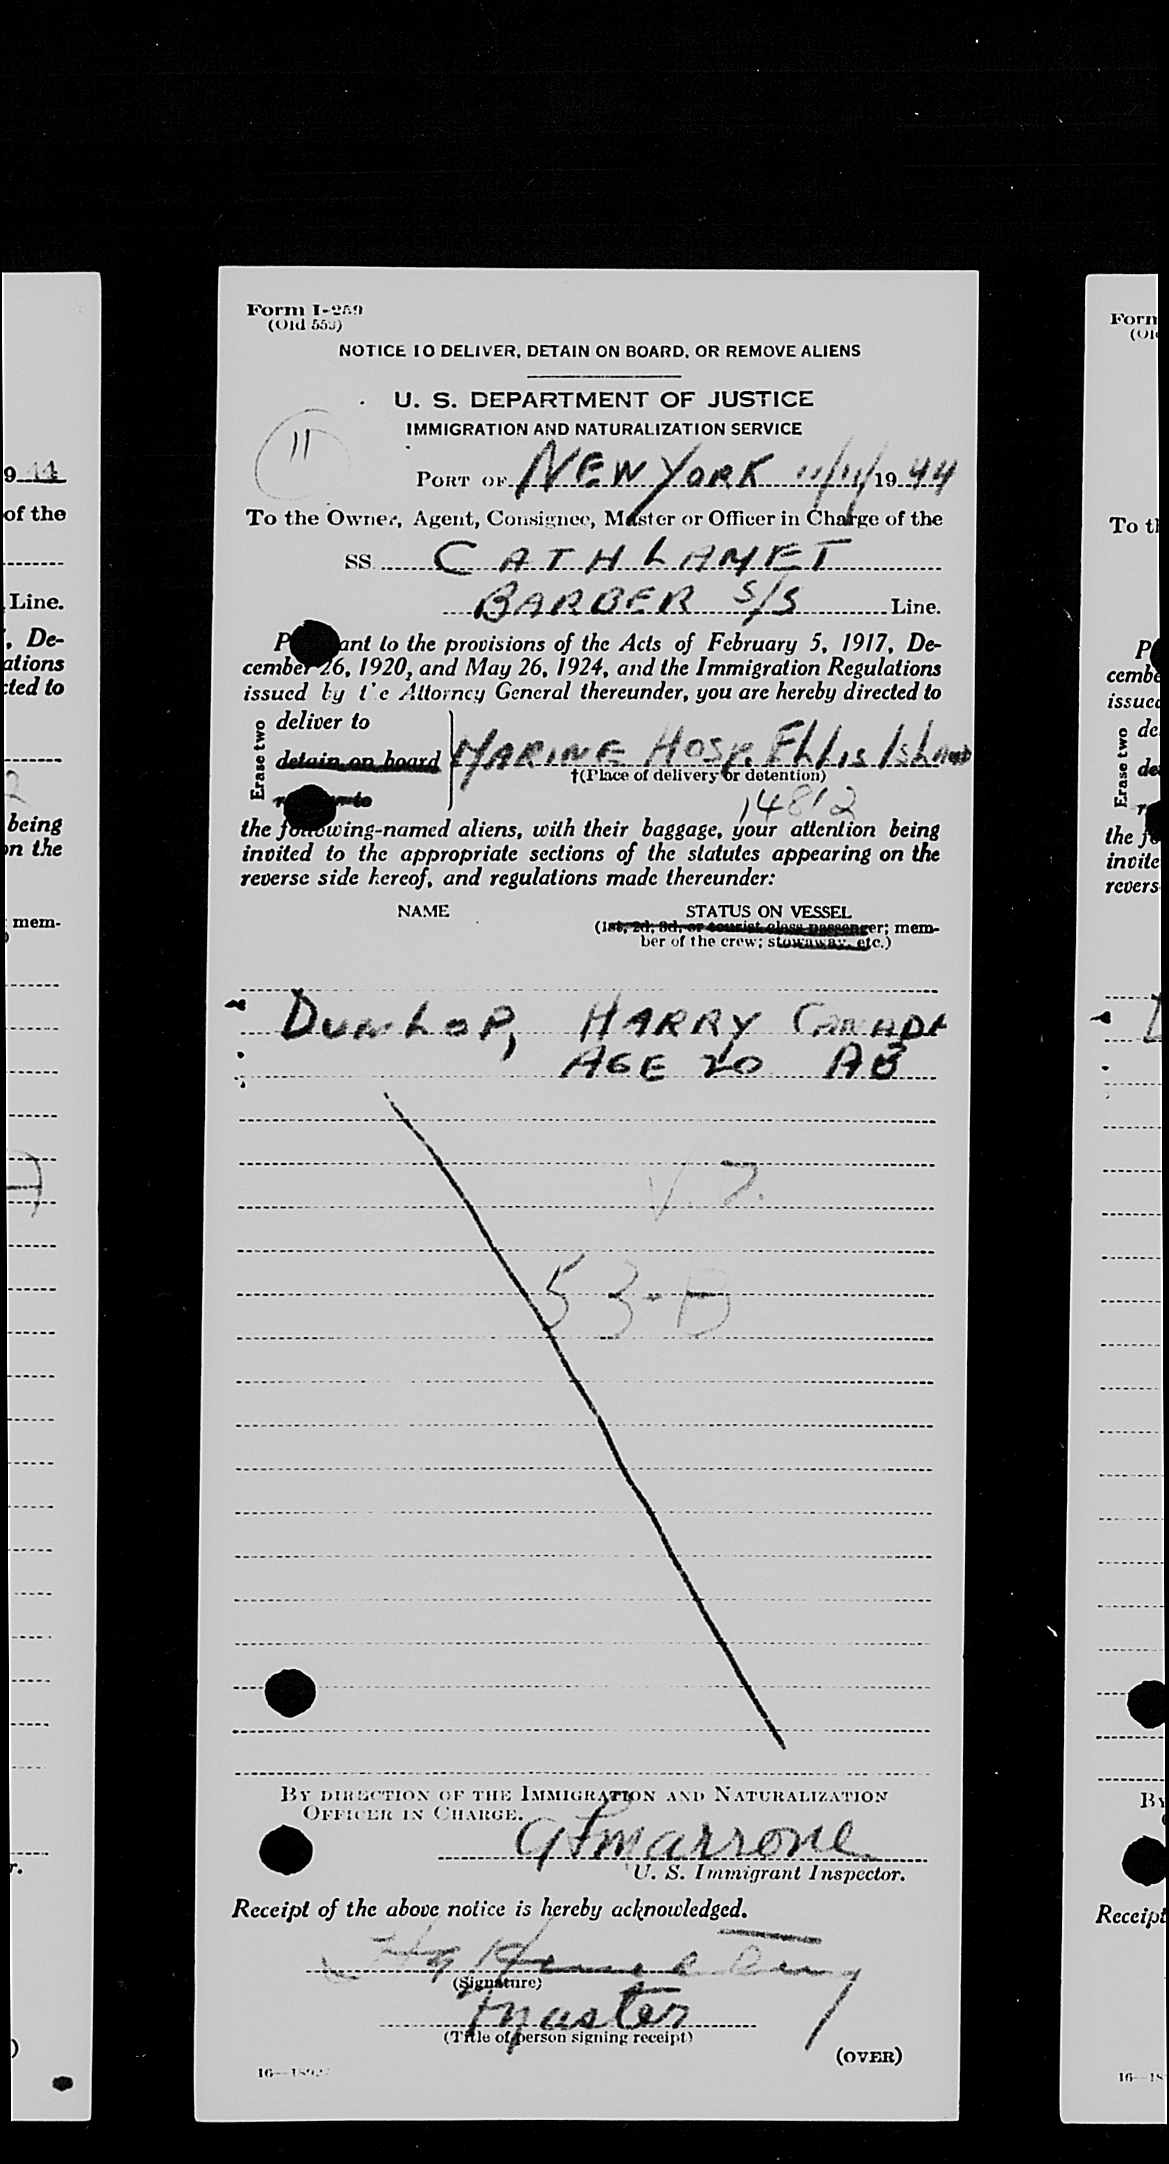 Form I-259
(Old 553)
NOTICE TO DELIVER, DETAIN ON BOARD, OR REMOVE ALIENS
U. S. DEPARTMENT OF JUSTICE
IMMIGRATION AND NATURALIZATION SERVICE
11
PORT OF NEW YORK 11/11/1944
To the Owner, Agent, Consignee, Master or Officer in Charge of the
SS. CATHLAMET
BARBER S/S Line.
P ant to the provisions of the Acts of February 5, 1917, De-
cember 26, 1920, and May 26, 1924, and the Immigration Regulations
issued by the Attorney General thereunder, you are hereby directed to
Erase two
deliver to
detain on board
MARINE HOSP. ELLIS ISLAND
†(Place of delivery or detention)
14812
the following-named aliens, with their baggage, your attention being
invited to the appropriate sections of the statutes appearing on the
reverse side hereof, and regulations made thereunder:
NAME
STATUS ON VESSEL
(1st, 2d, 3d, or tourist class passenger; mem-
ber of the crew; stowaway, etc.)
DUNLOP, HARRY CANADA
AGE 20 AB
V. 7.
53-B
BY DIRECTION OF THE IMMIGRATION AND NATURALIZATION
OFFICER IN CHARGE.
Marrone
U. S. Immigrant Inspector.
Receipt of the above notice is hereby acknowledged.
(Signature)
Master
(Title of person signing receipt)
(OVER)
9 44
of the
Line.
, De-
ations
cted to
being
on the
mem-
Form
To th
P
cembe
issued
Erase two
de
de
r
the fo
invite
revers
By
Receipt